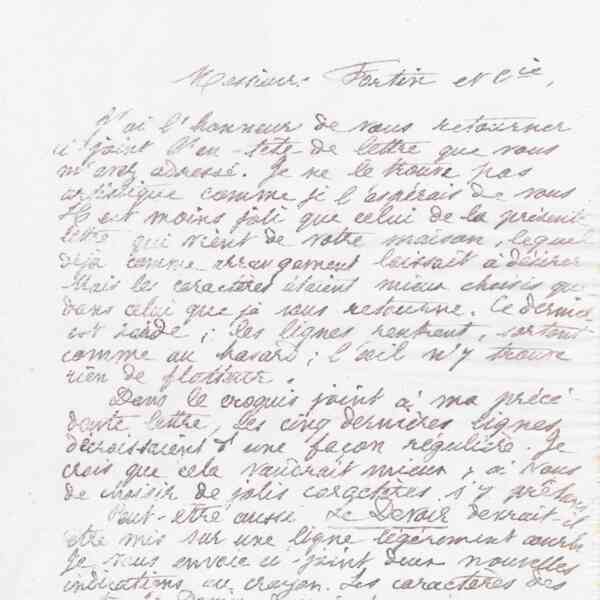 Messieurs Fortin et Cie,
J'ai l'honneur de vous retourner
ci joint l'en-tête de lettre que vous
m'avez adressé. Je ne le trouve pas
artistique comme je l'espérais de vous
Il est moins joli que celui de la présente
lettre qui vient de votre maison, lequel
déjà comme arrangement laissait à désirer
Mais les caractères étaient mieux choisis que
dans celui que je vous retourne. Ce dernier
est ; les lignes rentrent, sortent
comme au hasard ; l'œil n'y trouve
rien de flatteur.
Dans le croquis joint à ma précé-
dente lettre, les cinq dernières lignes
décroissaient d'une façon régulière. Je
crois que cela vaudrait mieux ; à vous
de choisir de jolis caractères s'y prêtant
Peut-être aussi Le Devoir devrait-il
être mis sur une ligne légèrement courbe
Je vous envoie ci joint deux nouvelles
indications au crayon. Les caractères des